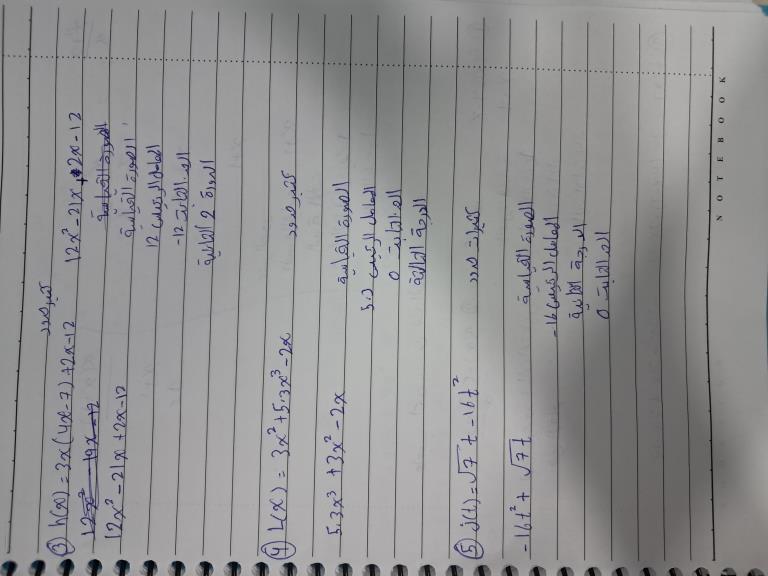 ③ h(x) = 3x(4x-7)+2x-12 كثير حدود
12x² - 19x - 12
12x² - 21x + 2x - 12
12x² - 21x + 2x - 12
الصورة القياسية
الصورة القياسية
المعامل الرئيسي 12
الحد الثابت -12
الدرجة 2 الثانية
④ L(x) = 3x² + 5.3x³ - 2x كثير حدود
5.3x³ + 3x² - 2x الصورة القياسية
المعامل الرئيسي 5.3
الحد الثابت 0
الدرجة الثالثة
⑤ j(t) = √7 t - 16t² كثيرة حدود
-16t² + √7t الصورة القياسية
المعامل الرئيسي -16
الدرجة الثانية
الحد الثابت 0
NOTEBOOK